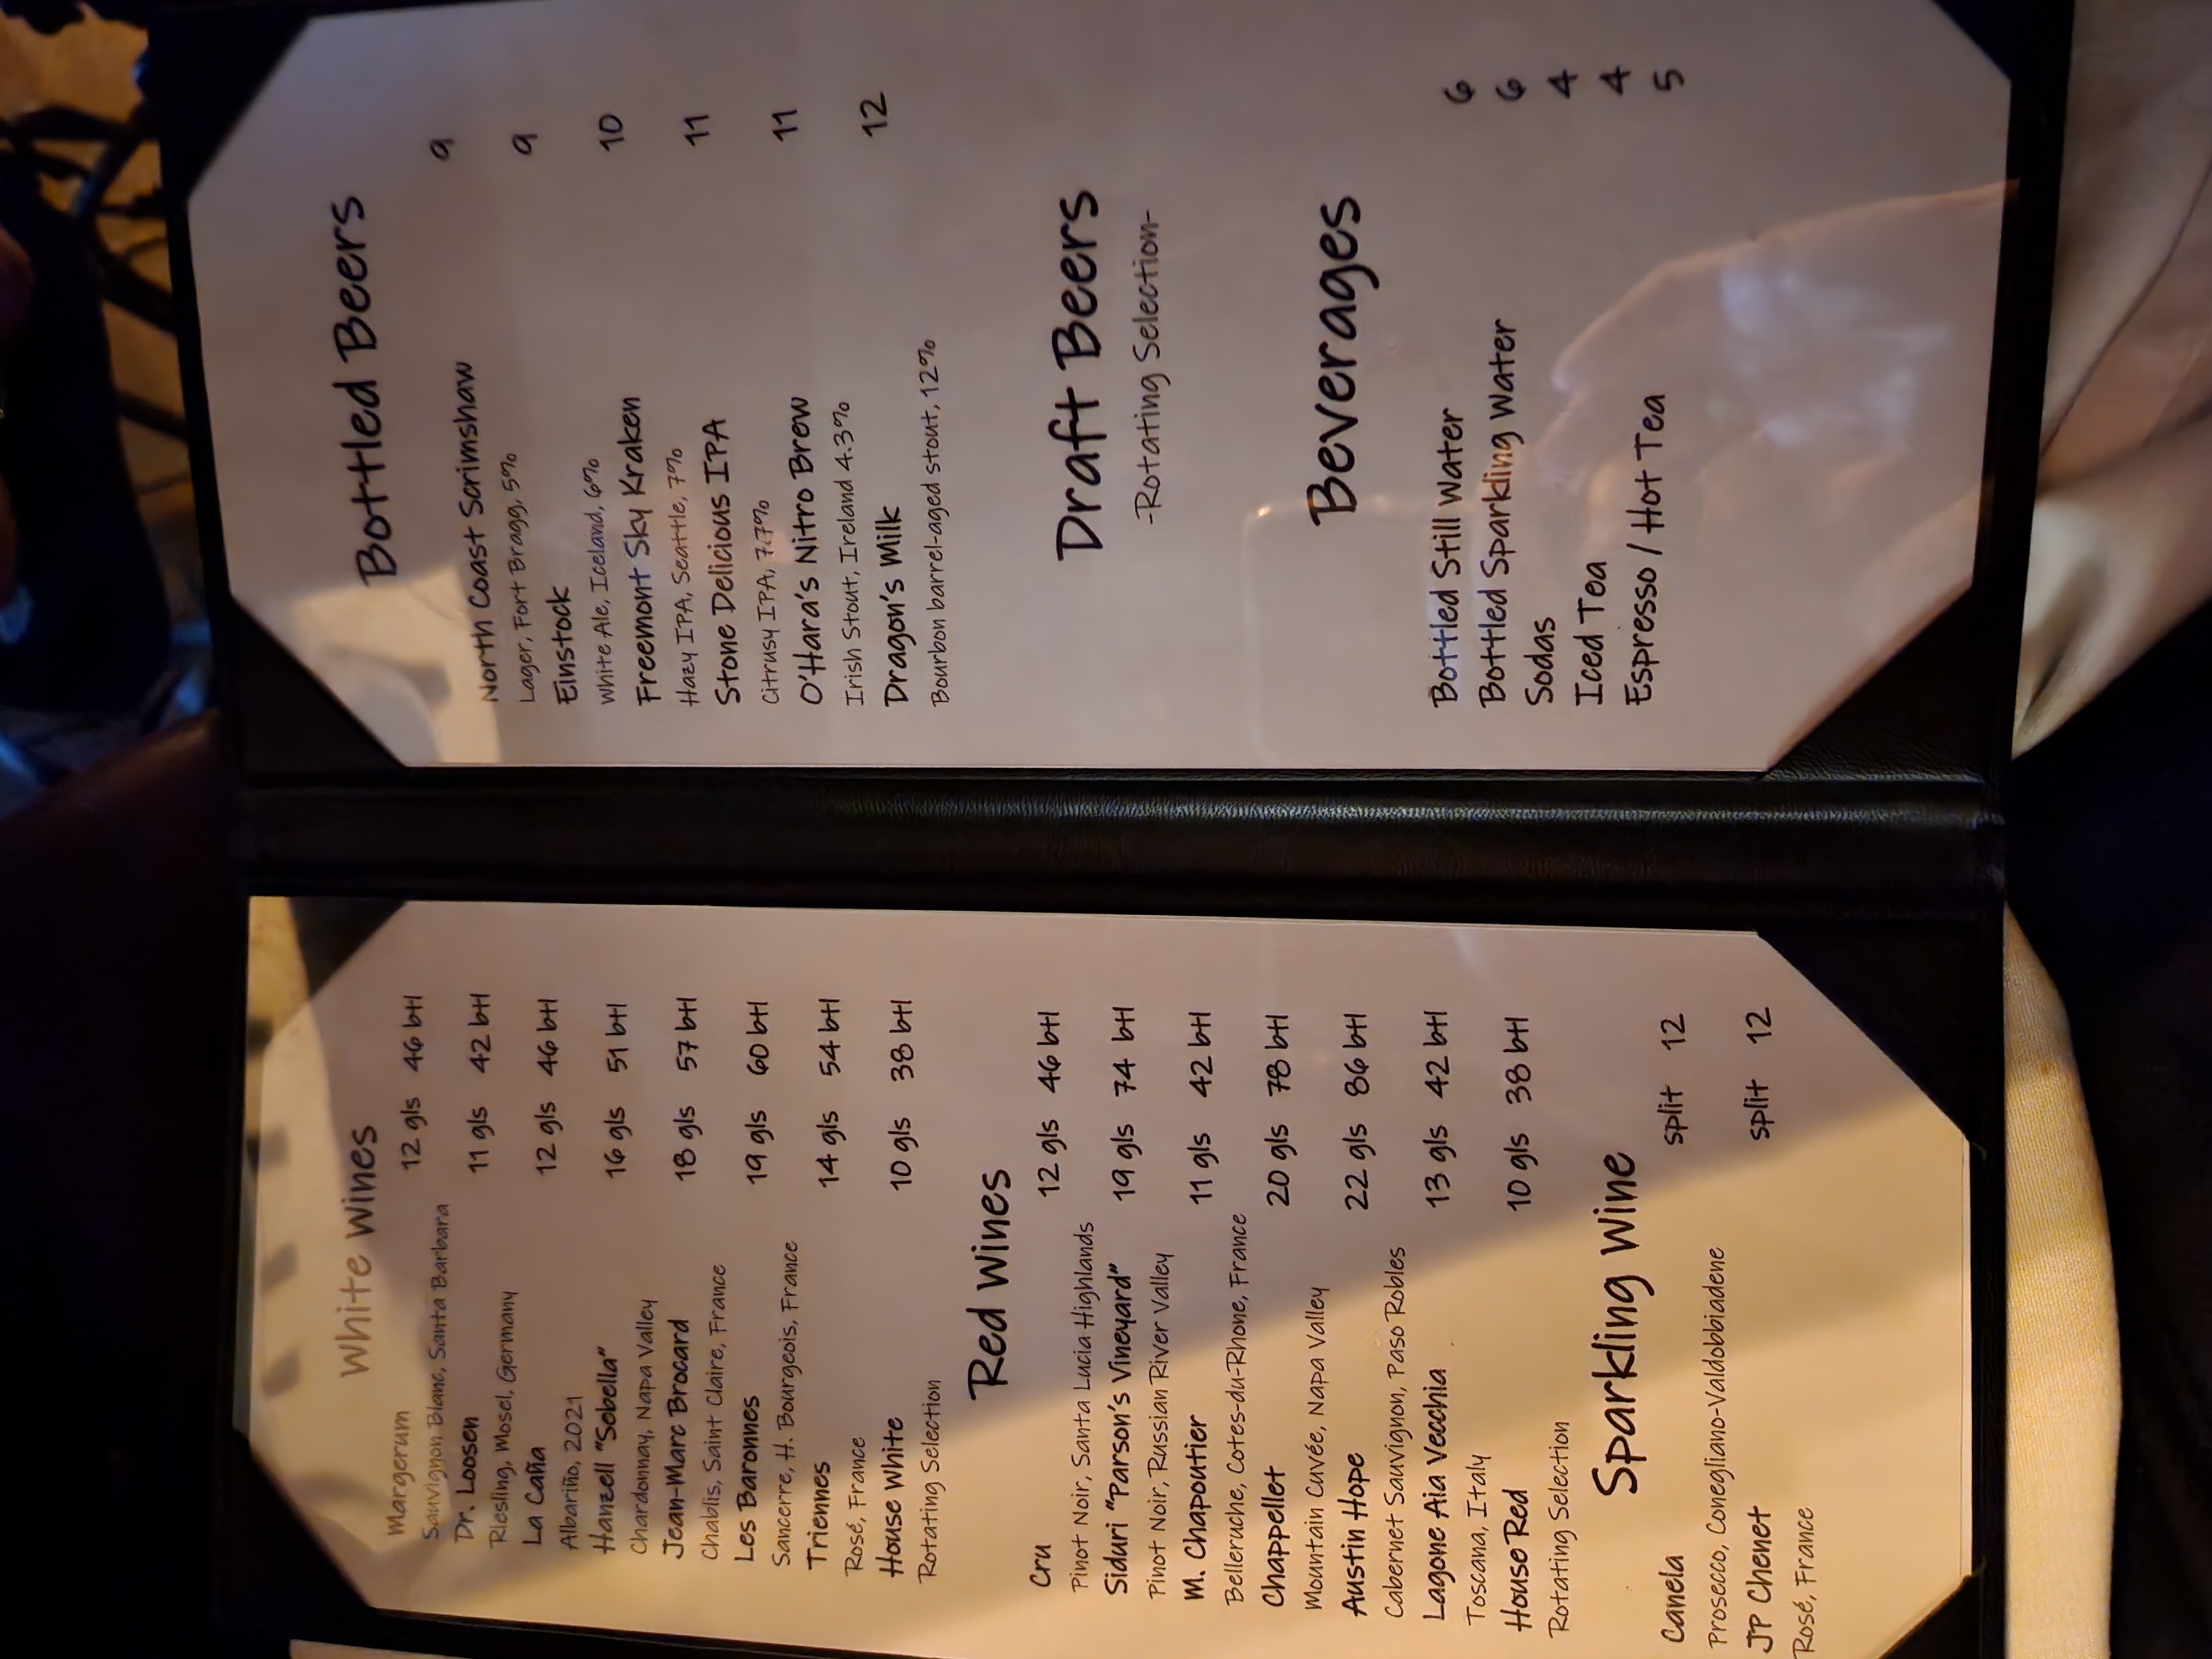 White Wines
Margerum 12 gls 46 btl
Sauvignon Blanc, Santa Barbara
Dr. Loosen 11 gls 42 btl
Riesling, Mosel, Germany
La Caña 12 gls 46 btl
Albariño, 2021
Hanzell "Sebella" 16 gls 51 btl
Chardonnay, Napa Valley
Jean-Marc Brocard 18 gls 57 btl
Chablis, Saint Claire, France
Les Baronnes 19 gls 60 btl
Sancerre, H. Bourgeois, France
Triennes 14 gls 54 btl
Rosé, France
House White 10 gls 38 btl
Rotating Selection
Red Wines
Cru 12 gls 46 btl
Pinot Noir, Santa Lucia Highlands
Siduri "Parson's Vineyard" 19 gls 74 btl
Pinot Noir, Russian River Valley
M. Chapoutier 11 gls 42 btl
Belleruche, Cotes-du-Rhone, France
Chappellet 20 gls 78 btl
Mountain Cuvée, Napa Valley
Austin Hope 22 gls 86 btl
Cabernet Sauvignon, Paso Robles
Lagone Aia Vecchia 13 gls 42 btl
Toscana, Italy
House Red 10 gls 38 btl
Rotating Selection
Sparkling Wine
Canela split 12
Prosecco, Conegliano-Valdobbiadene
JP Chenet split 12
Rosé, France
Bottled Beers
North Coast Scrimshaw 9
Lager, Fort Bragg, 5%
Einstock 9
White Ale, Iceland, 6%
Freemont Sky Kraken 10
Hazy IPA, Seattle, 7%
Stone Delicious IPA 11
Citrusy IPA, 7.7%
O'Hara's Nitro Brew 11
Irish Stout, Ireland 4.3%
Dragon's Milk 12
Bourbon barrel-aged stout, 12%
Draft Beers
-Rotating Selection-
Beverages
Bottled Still Water 6
Bottled Sparkling Water 6
Sodas 4
Iced Tea 4
Espresso / Hot Tea 5